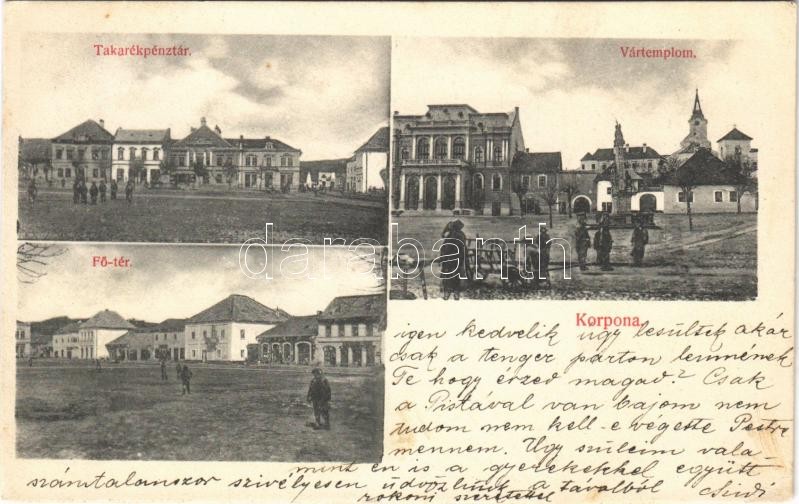 Takarékpénztár.
Vártemplom.
Fő-tér.
darabanth
Korpona.
igen kedvelik úgy lesültek akár
csak a tenger parton lennének
Te hogy érzed magad? Csak
a Pistával van bajom nem
tudom nem kell-e végette Pestre
mennem. Úgy szüleim vala-
mint én is a gyerekekkel együtt
számtalanszor szivélyesen üdvözlünk a távolból
rokoni szeretettel